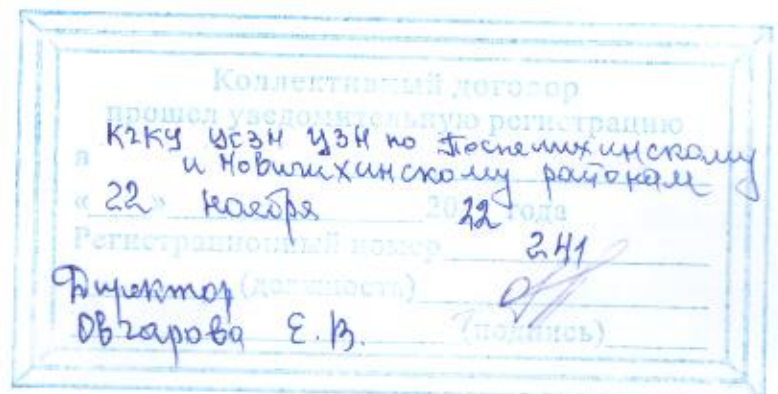 Коллективный договор
прошел уведомительную регистрацию
в КГКУ УСЗН ЦЗН по Поспелихинскому
и Новичихинскому районам
« 22 » ноября 2022 года
Регистрационный номер 241
Директор (должность)
Овчарова Е.В. (подпись)